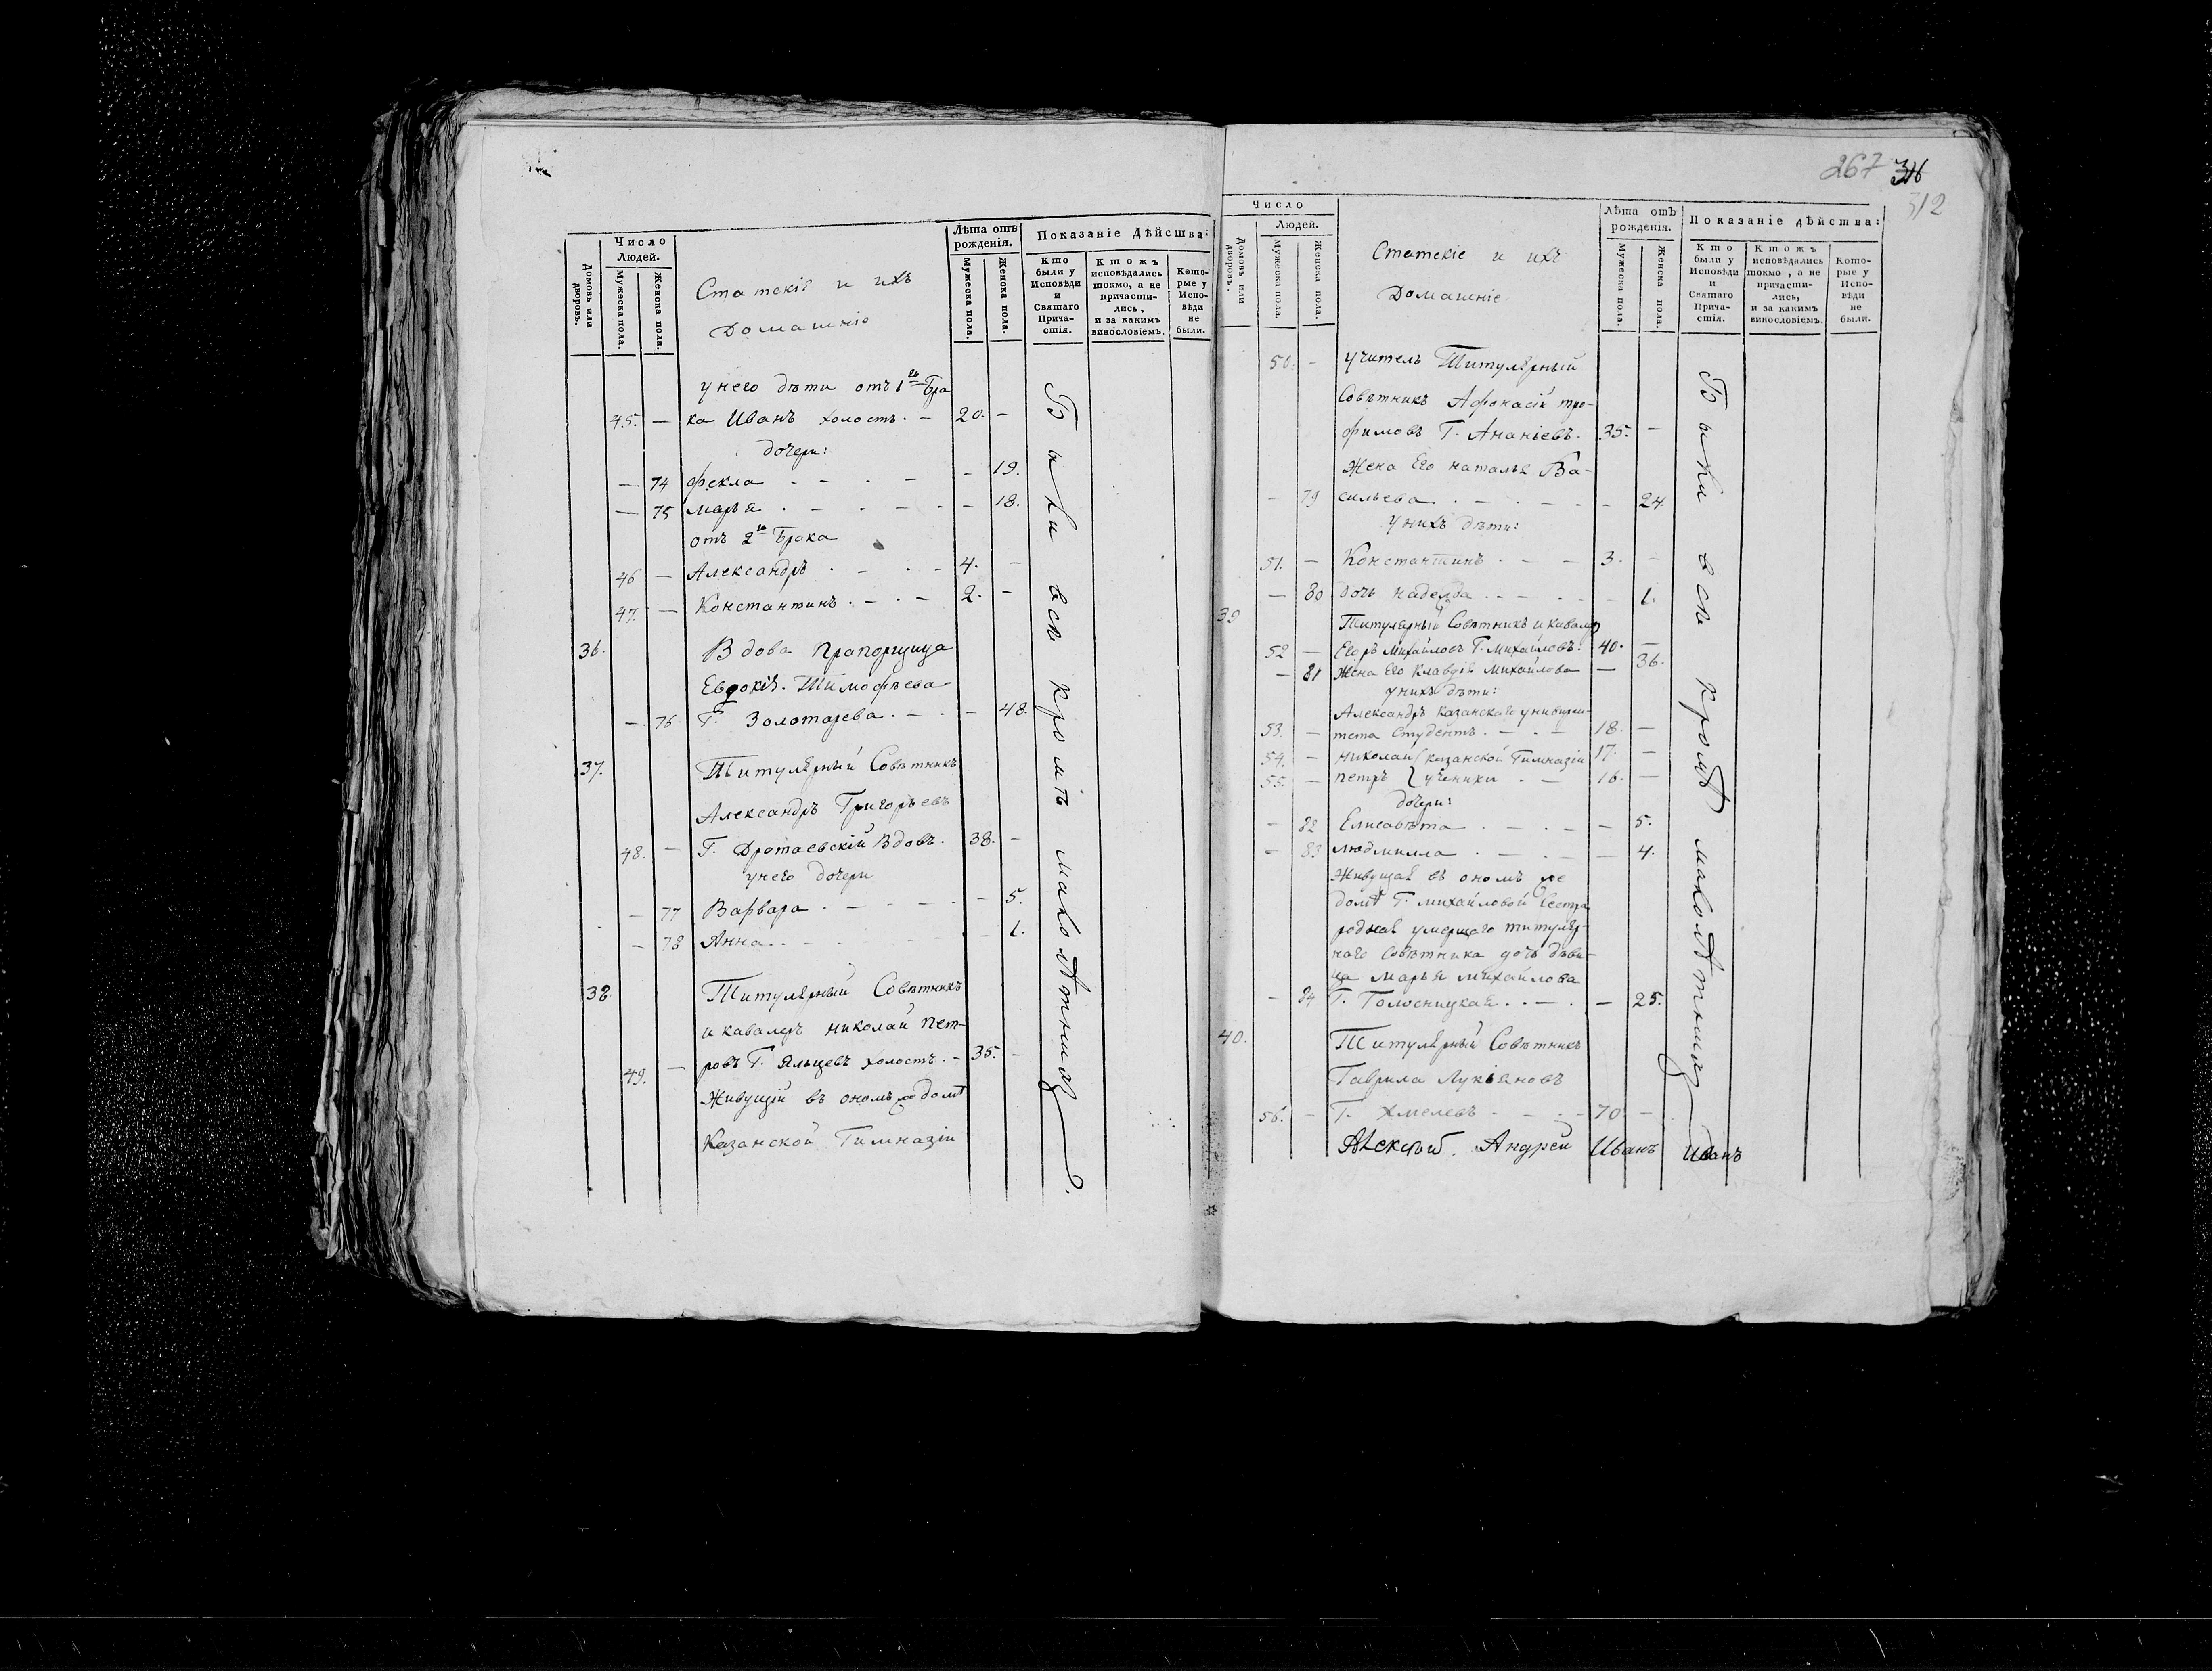 Число
Людей.
Домовъ или дворовъ.
Мужеска пола.
Женска пола.
Статскія и ихъ
Домашніе
Лѣта отъ
рожденія.
Мужеска пола.
Женска пола.
Показаніе Дѣйства:
Кто
были у
Исповѣди
и
Святаго
Прича-
стія.
Ктожъ
исповѣдались
токмо, а не
причасти-
лись,
и за какимъ
винословіемъ.
Кото-
рые у
Испо-
вѣди
не
были.
у него дѣти отъ 1го Бра
45. — ка Иванъ холостъ. — 20. —
дочери:
— 74 Фекла — 19.
— 75 Марья — 18.
отъ 2го Брака
46 — Александръ 4. —
47. — Константинъ 2. —
36. Вдова Прапорщица
Евдокія Тимофѣева
— 76 Г. Золотарева — 48.
37. Титулярный Совѣтникъ
Александръ Григорьевъ
48. — Г. Дротаевскій Вдовъ. 38. —
у него дочери
— 77 Варвара — 5.
— 78 Анна — 1.
38. Титулярный Совѣтникъ
и кавалеръ Николай Пет-
49. — ровъ Г. Яльцевъ холостъ. — 35. —
Живущій въ ономъ же домѣ
Казанской Гимназіи
Были вси кромѣ малолѣтнихъ.
267
312
Число
Людей.
Домовъ или дворовъ.
Мужеска пола.
Женска пола.
Статскіе и ихъ
Домашніе
Лѣта отъ
рожденія.
Мужеска пола.
Женска пола.
Показаніе дѣйства:
Кто
были у
Исповѣди
и
Святаго
Прича-
стія.
Ктожъ
исповѣдались
токмо, а не
причасти-
лись,
и за какимъ
винословіемъ.
Кото-
рые у
Испо-
вѣди
не
были.
50. — учитель Титулярный
Совѣтникъ Афонасій тро-
фимовъ Г. Ананіевъ. 35. —
Жена Его Наталья Ва-
— 79 сильева — 24.
У нихъ дѣти:
51. — Константинъ 3. —
— 80 дочь надежда — 1.
39 Титулярный Совѣтникъ и кавалер
52 — Егоръ Михайловъ Г. Михайловъ. 40. —
— 81 Жена Его Клавдія Михайлова — 36.
у нихъ дѣти:
Александръ казанскаго универси-
53. — тета Студентъ. 18. —
54. — Николай { казанской Гимназіи 17. —
55. — петръ { ученики 16. —
дочери:
— 82 Елисавѣта — 5.
— 83 людмилла — 4.
Живущая въ ономъ же
домѣ Г. Михайловой Сестра
родная умершаго титуляр-
наго Совѣтника дочь дѣви-
ца Марья Михайлова
— 84 Г. Голосницкая — 25.
40. Титулярный Совѣтникъ
Гаврила Лукіановъ
56. — Г. Хмелевъ 70. —
Алексѣй. Андрей Иванъ Иванъ
Были вси кромѣ малолѣтнихъ